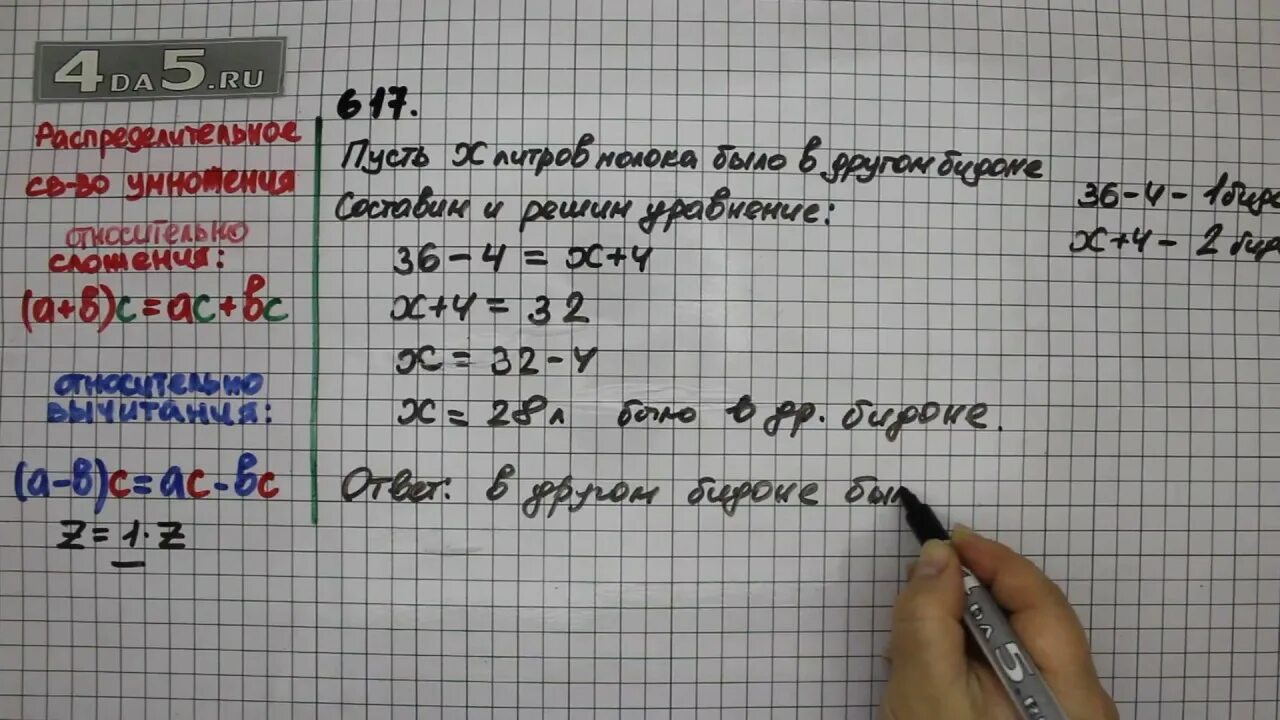 4DA5.RU
Распределительное
св-во умножения
относительно
сложения:
(a+в)c=ac+вc
относительно
вычитания:
(a-в)c=ac-вc
Z=1·Z
617.
Пусть x литров молока было в другом бидоне
Составим и решим уравнение:
36-4=x+4
x+4=32
x=32-4
x=28л было в др. бидоне.
Ответ: в другом бидоне был
36-4-1бид
x+4-2 бид
DA 5